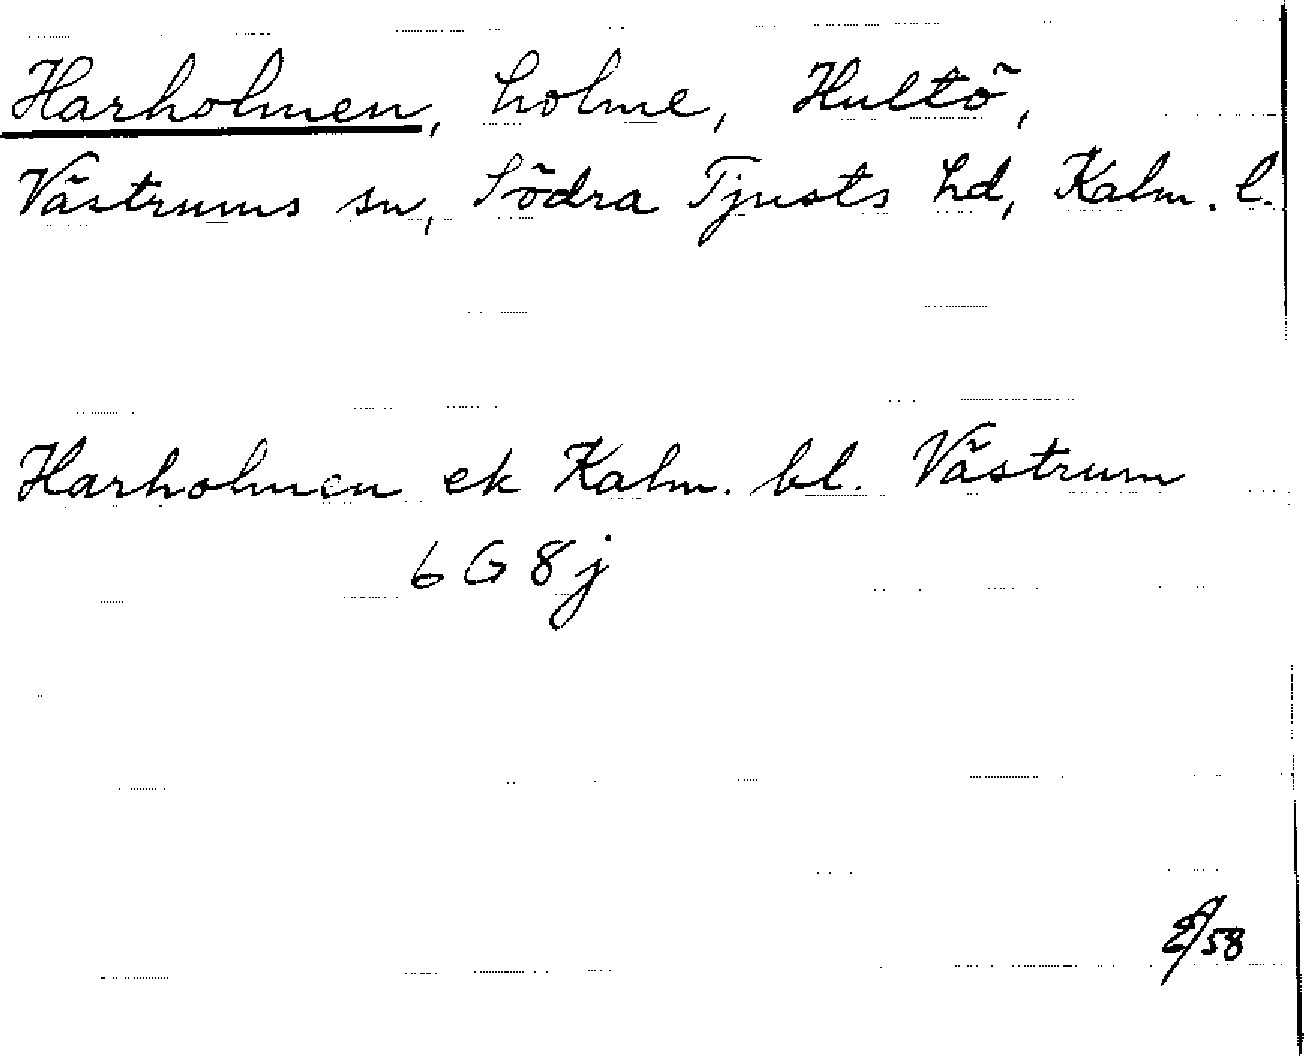 Harholmen, holme, Hultö,
Västrums sn, Södra Tjusts hd, Kalm. l.
Harholmen ek Kalm. bl. Västrum
6 G 8 j
/58